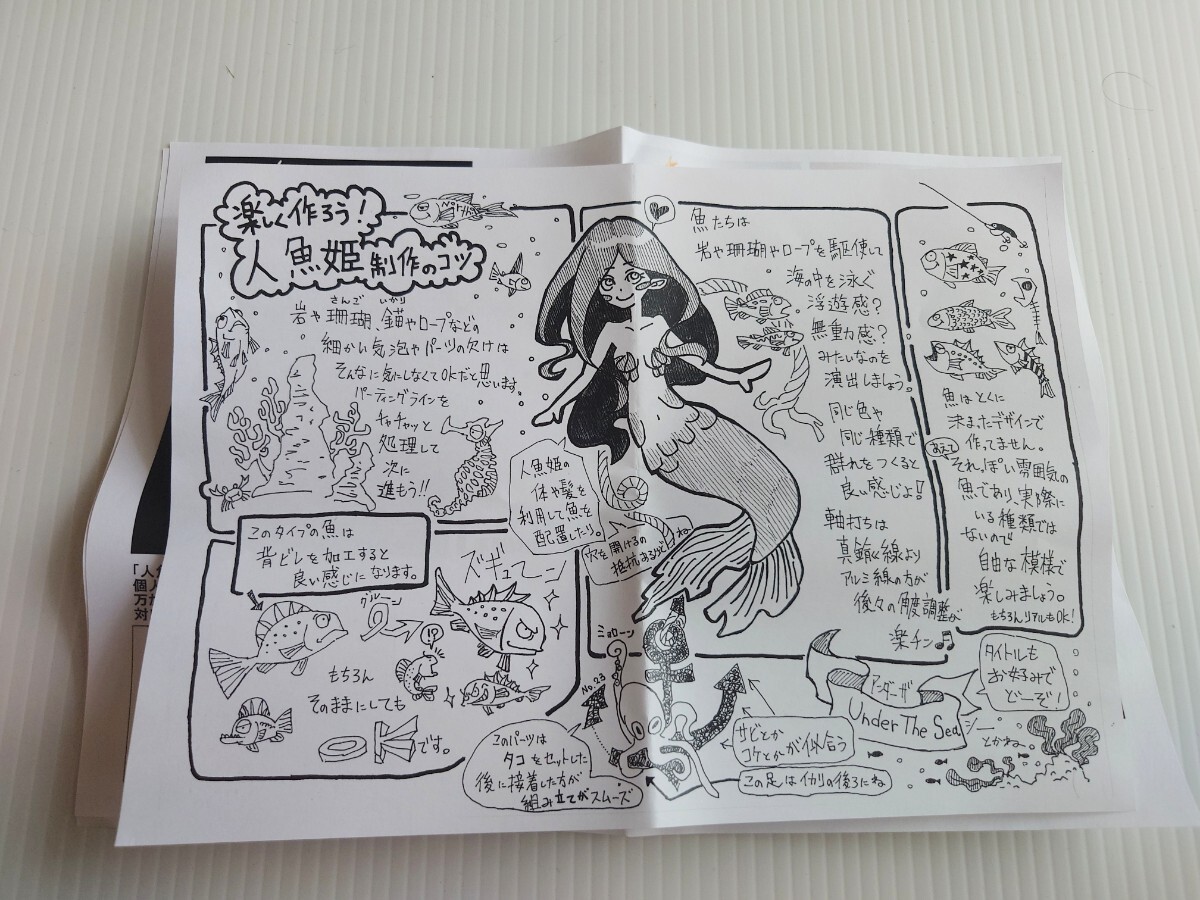 楽しく作ろう！
人魚姫制作のコツ
さんご いかり
岩や珊瑚、錨やロープなどの
細かい気泡やパーツの欠けは
そんなに気にしなくてOKだと思います。
パーティングラインを
チャチャッと
処理して
次に
進もう!!
魚たちは
岩や珊瑚やロープを駆使して
海の中を泳ぐ
浮遊感？
無重力感？
みたいなのを
演出しましょう。
同じ色や
同じ種類で
群れをつくると
良い感じよ！
軸打ちは
真鍮線より
アルミ線の方が
後々の角度調整が
楽チン♫
魚はとくに
決まったデザインで
作ってません。
あえて
それっぽい雰囲気の
魚であり実際に
いる種類では
ないので
自由な模様で
楽しみましょう。
もちろんリアルもOK！
人魚姫の
体や髪を
利用して魚を
配置したり。
穴を開けるの
抵抗あるけどね
このタイプの魚は
背ビレを加工すると
良い感じになります。
ズギューン
グルーン
!?
もちろん
そのままにしても
OKです。
ミョローン
No.23
このパーツは
タコをセットした
後に接着した方が
組み立てがスムーズ
サビとか
コケとかが似合う
この足はイカリの後ろにね
アンダーザ
Under The Sea
シー
とかね。
タイトルも
お好みで
どーぞ！
「人
個人
万が
対